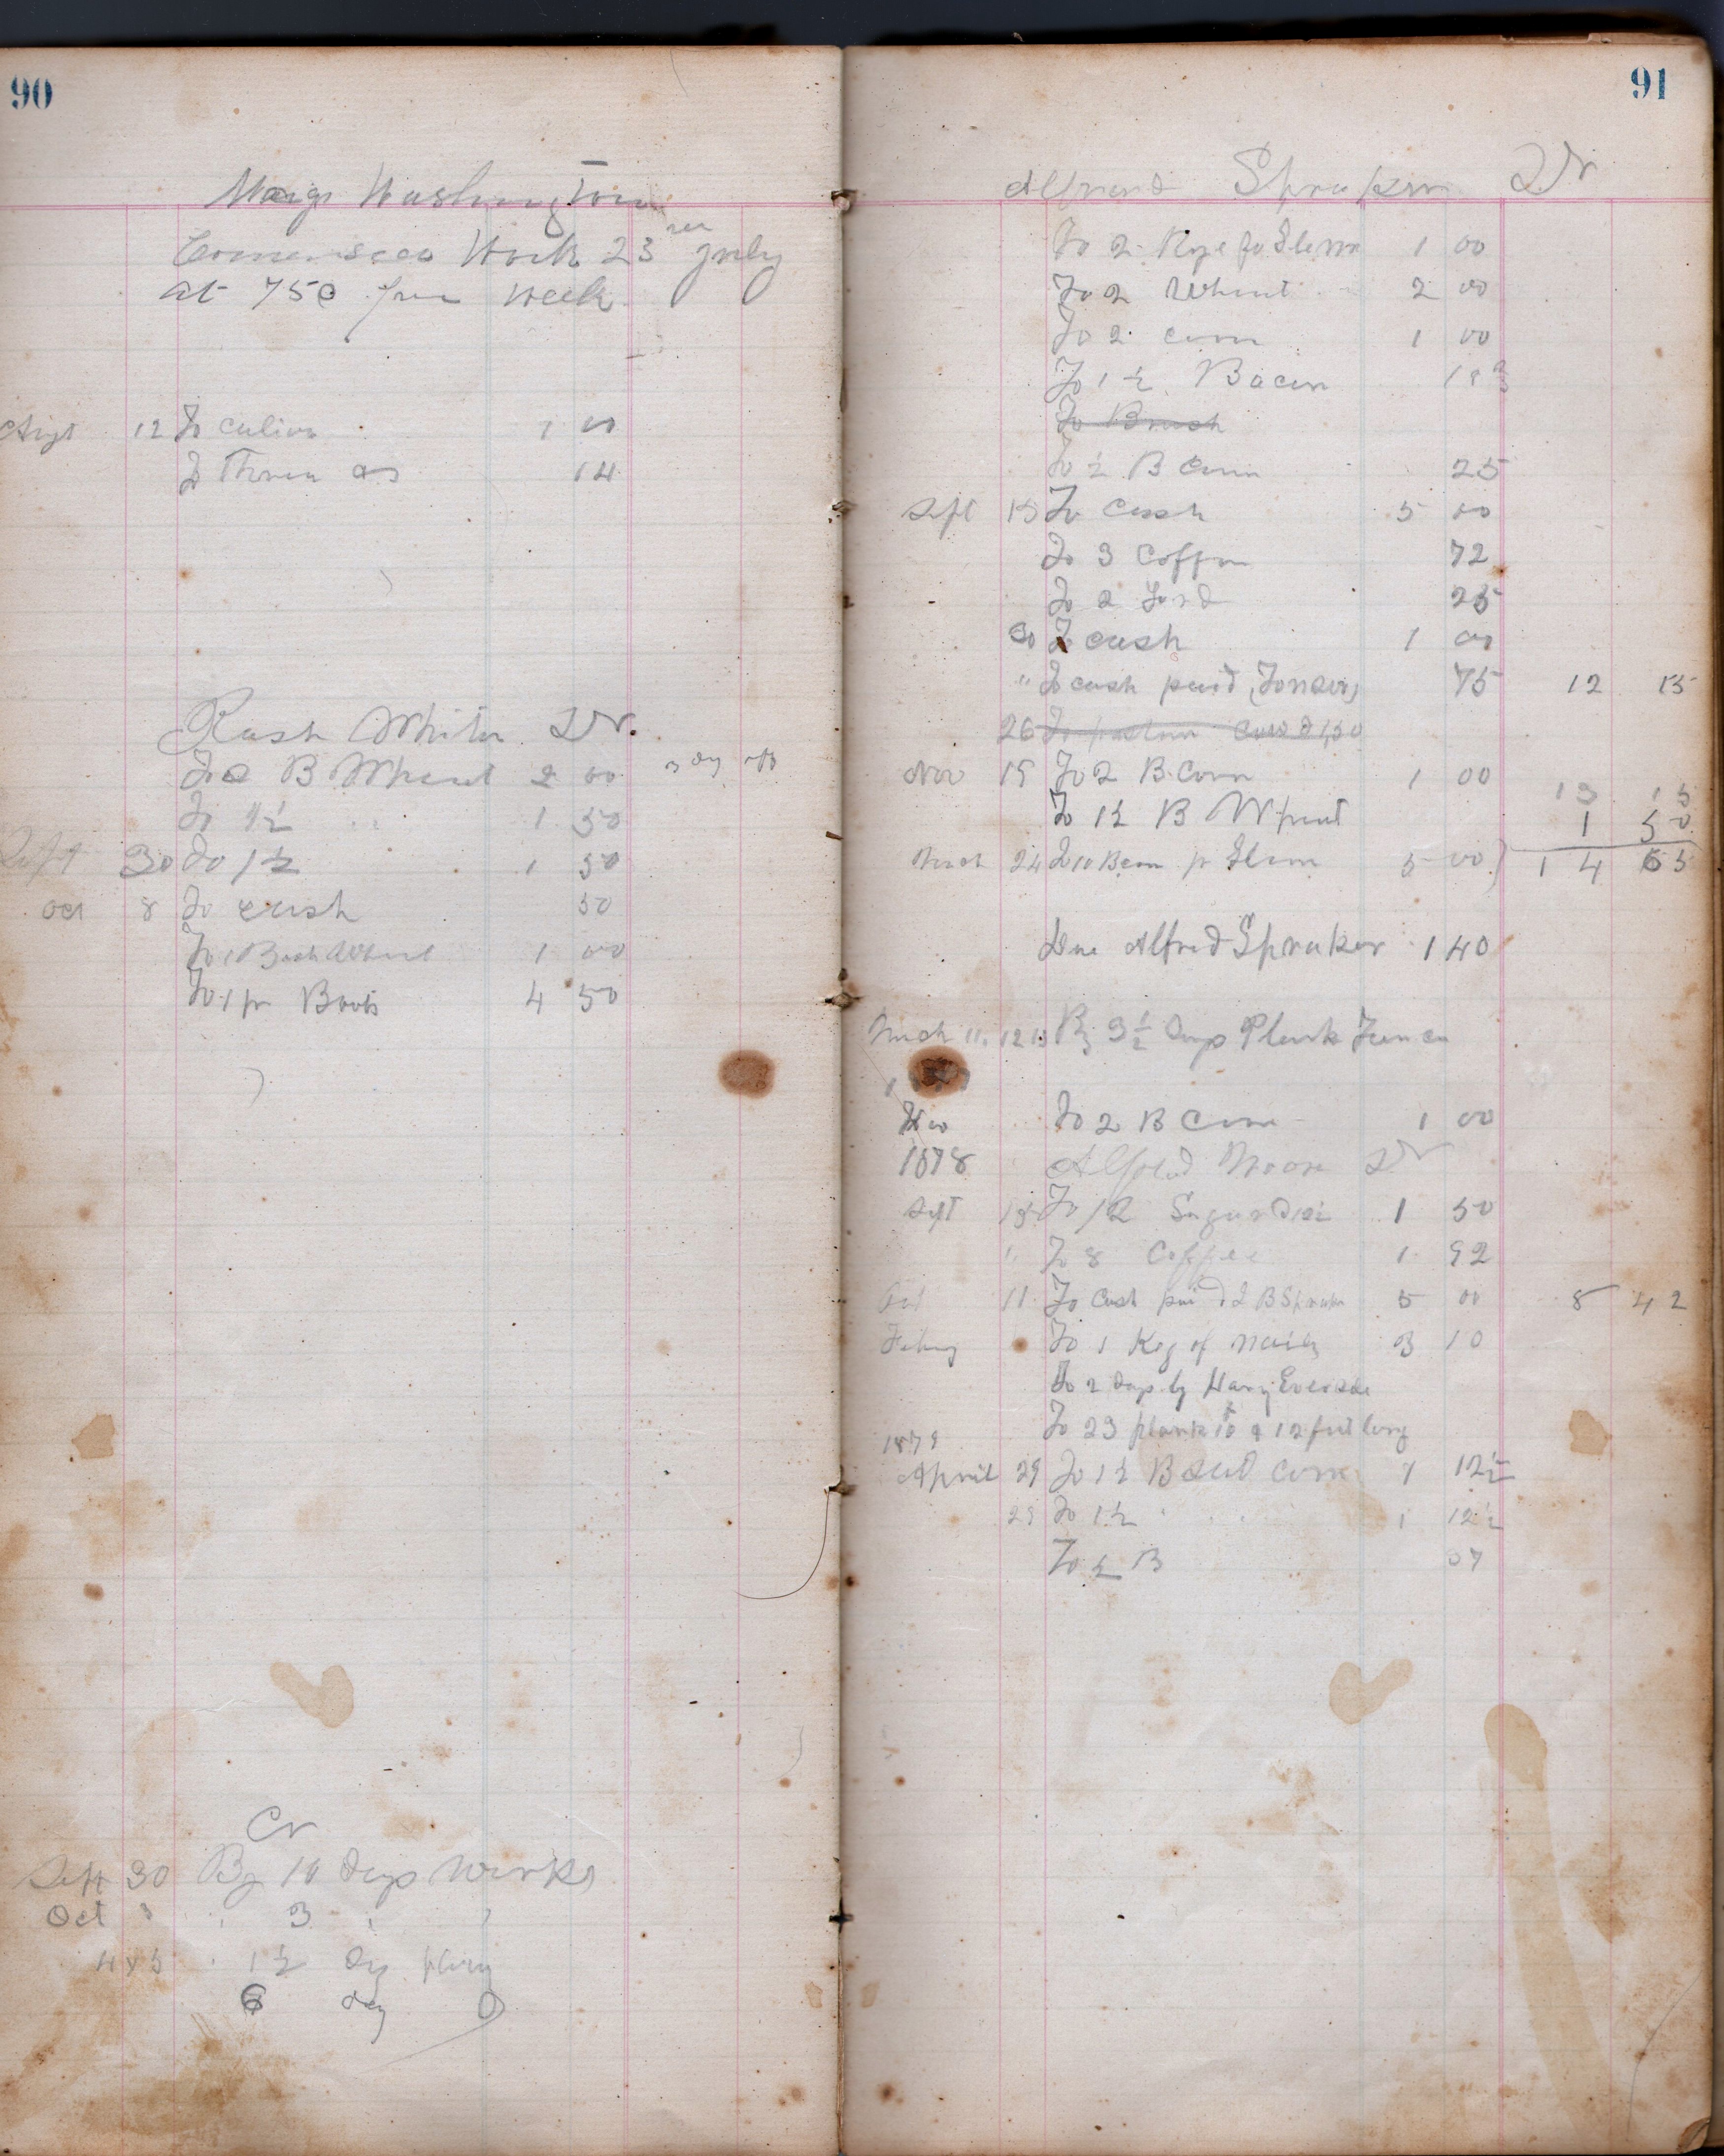 90
Washington
Work 23 July
at 75c per week
Augt 12 To calico 1 00
To Thread 14
Rush White Dr.
To 2 B Wheat 2 00
To 1½ " 1 50
Sept 30 To 1½ 1 50
Oct 8 To cash 50
To 1 Bush Wheat 1 00
To 1 pr Boots 4 50
Cr
Sept 30 By 10 days works
Oct 3
4 & 5 1½ Dy
6 day
91
Spraker Dr
To 2 Rye 1 00
To 2 Wheat 2 00
To 2 corn 1 00
To 1½ Bacon
To Brush
To ½ B corn 25
Sept 15 To Cash 5 00
To 3 Coffee 72
To 2 Lard 25
30 To cash 1 00
" To cash paid 75 12 15
26
Nov 15 To 2 B. Corn 1 00
13 15
To 1½ B Wheat 1 50
March 24 To 10 B corn 5 00 14 65
Due Alfred Spraker 140
March 11. 12 13 By 3½ Days Plank Fence
Nov To 2 B Corn 1 00
1878 Alfred Moore Dr
Sept 15 To 12 Sugar 1 50
" To 8 Coffee 1 92
Oct 11 To Cash paid 5 00 8 42
To 1 Keg of nails 3 10
To 2 days by
To 23 plank 10 & 12 feet long
1879
April 29 To 1½ B seed corn 1 12½
29 To 1½ " " " 1 12½
To ½ B 37